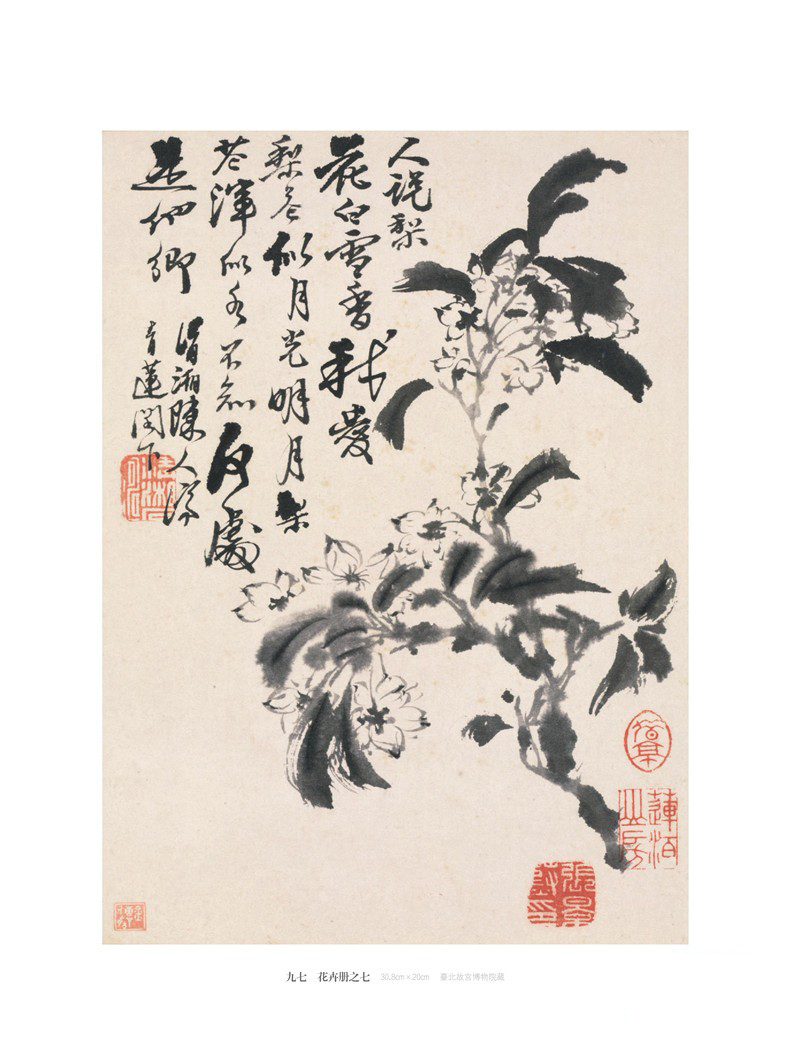 人説梨
花白雪香我愛
梨花似月光明月梨
花渾似水不知何處
是他鄉 清湘陳人濟
青蓮閣下
九七 花卉册之七 30.8cm × 20cm 臺北故宮博物館藏